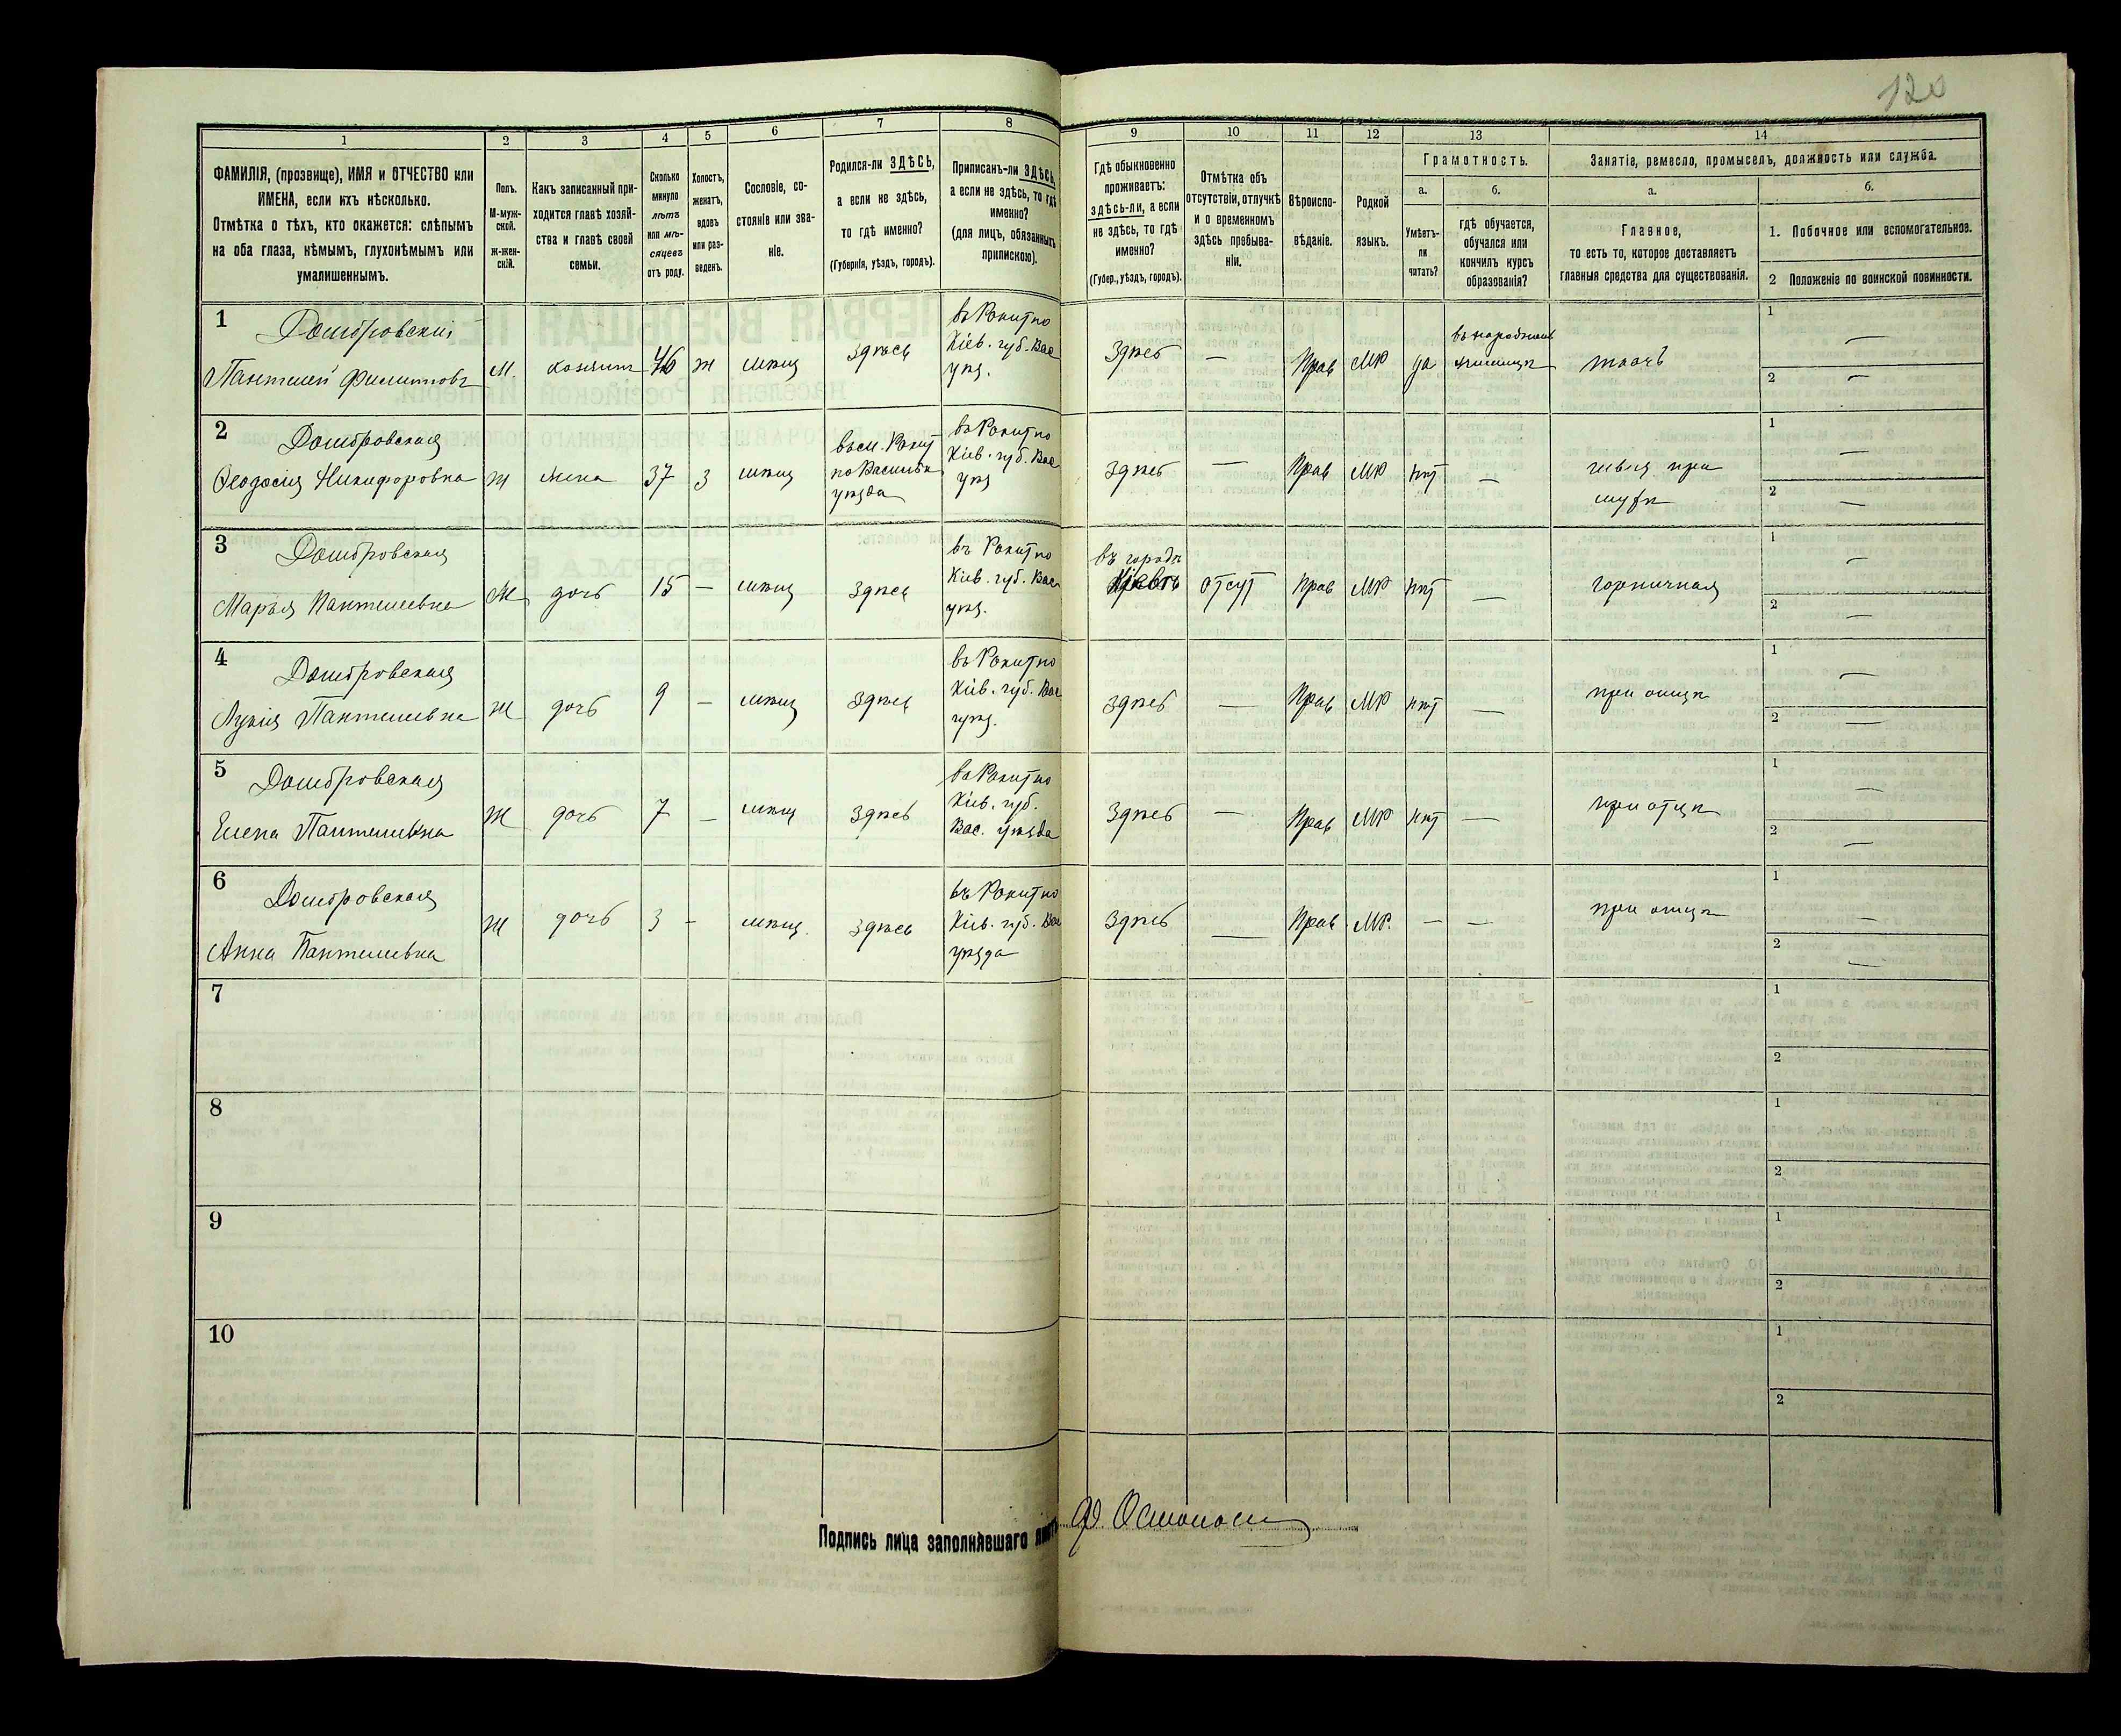 120
1 2 3 4 5 6 7 8 9 10 11 12 13 14
ФАМИЛІЯ, (прозвище), ИМЯ и ОТЧЕСТВО или
ИМЕНА, если ихъ нѣсколько.
Отмѣтка о тѣхъ, кто окажется: слѣпымъ
на оба глаза, нѣмымъ, глухонѣмымъ или
умалишеннымъ.
Полъ.
М-муж-
ской.
Ж-жен-
скій.
Какъ записанный при-
ходится главѣ хозяй-
ства и главѣ своей
семьи.
Сколько
минуло
лѣтъ
или мѣ-
сяцевъ
отъ роду.
Холостъ,
женатъ,
вдовъ
или раз-
веденъ.
Сословіе, со-
стояніе или зва-
ніе.
Родился-ли ЗДѢСЬ,
а если не здѣсь,
то гдѣ именно?
(Губернія, уѣздъ, городъ).
Приписанъ-ли ЗДѢСЬ,
а если не здѣсь, то гдѣ
именно?
(для лицъ, обязанныхъ
припискою).
Гдѣ обыкновенно
проживаетъ:
здѣсь-ли, а если
не здѣсь, то гдѣ
именно?
(Губер., уѣздъ, городъ).
Отмѣтка объ
отсутствіи, отлучкѣ
и о временномъ
здѣсь пребыва-
ніи.
Вѣроиспо-
вѣданіе.
Родной
языкъ.
Грамотность.
а.
Умѣетъ-
ли
читать?
б.
гдѣ обучается,
обучался или
кончилъ курсъ
образованія?
Занятіе, ремесло, промыселъ, должность или служба.
а.
Главное,
то есть то, которое доставляетъ
главныя средства для существованія.
б.
1. Побочное или вспомогательное.
2 Положеніе по воинской повинности.
1 Домбровскій
Пантелей Филиповъ
М. хозяинъ 46 ж мѣщ здѣсь
въ Рокитно
Кіев. губ. Вас
уѣз.
здѣсь — Прав МР да
въ народномъ
училищѣ
ткачъ
1 —
2 —
2 Домбровская
Феодосія Никифоровна
ж жена 37 з мѣщ
въ м. Рокит
но Васильк
уѣзда
въ Рокитно
Кіев. губ. Вас
уѣз
здѣсь — Прав МР нѣт —
швея при
мужѣ
1 —
2 —
3 Домбровская
Марья Пантелевна
Ж дочь 15 — мѣщ здѣсь
въ Рокитно
Кіев. губ. Вас
уѣз.
въ городѣ
Кіевѣ
отсут Прав МР нѣт —
горничная
1 —
2 —
4 Домбровская
Лукія Пантелевна
Ж дочь 9 — мѣщ здѣсь
въ Рокитно
Кіев. губ. Вас
уѣз.
здѣсь — Прав МР нѣт —
при отцѣ
1 —
2 —
5 Домбровская
Елена Пантелевна
Ж дочь 7 — мѣщ здѣсь
въ Рокитно
Кіев. губ.
Вас. уѣзда
здѣсь — Прав МР нѣт —
при отцѣ
1 —
2 —
6 Домбровская
Анна Пантелевна
Ж дочь 3 — мѣщ. здѣсь
въ Рокитно
Кіев. губ. Вас
уѣзда
здѣсь — Прав МР. — —
при отцѣ
1 —
2 —
7
1
2
8
1
2
9
1
2
10
1
2
Подпись лица заполнявшаго листъ